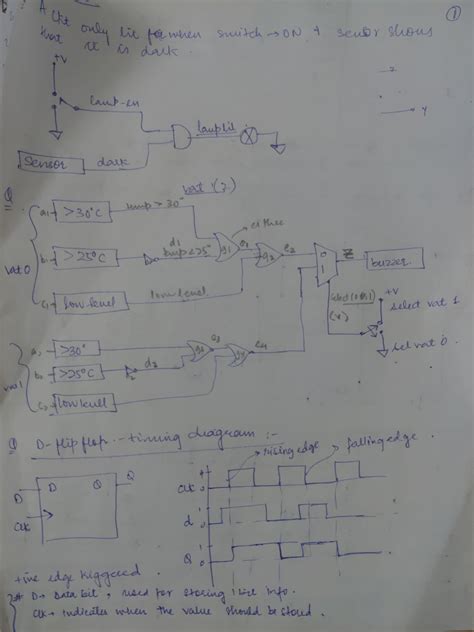 ①
A ckt only lit when switch → ON & sensor shows
that it is dark.
+V
lamp-en
lamp lit
Sensor
dark
→ y
Q
vat 1(2)
a₁
>30°C
temp > 30°
either
vat 0
b₁
>25°C
d₁
temp < 25°
g₁
e₁
g₂
e₂
0
1
Z
buzzer
c₁
low level
low level
+V
select vat 1
(v)
sel vat 0.
vat 1
>30°
>25°C
d₂
e₃
e₄
low level
Q D-flip flop - timing diagram :-
rising edge
falling edge
D
D
Q
Q
clk
clk
1
0
d
1
0
Q
1
0
+ive edge triggered.
# D → Data bit, used for storing 1 bit info.
Clk → indicates when the value should be stored.